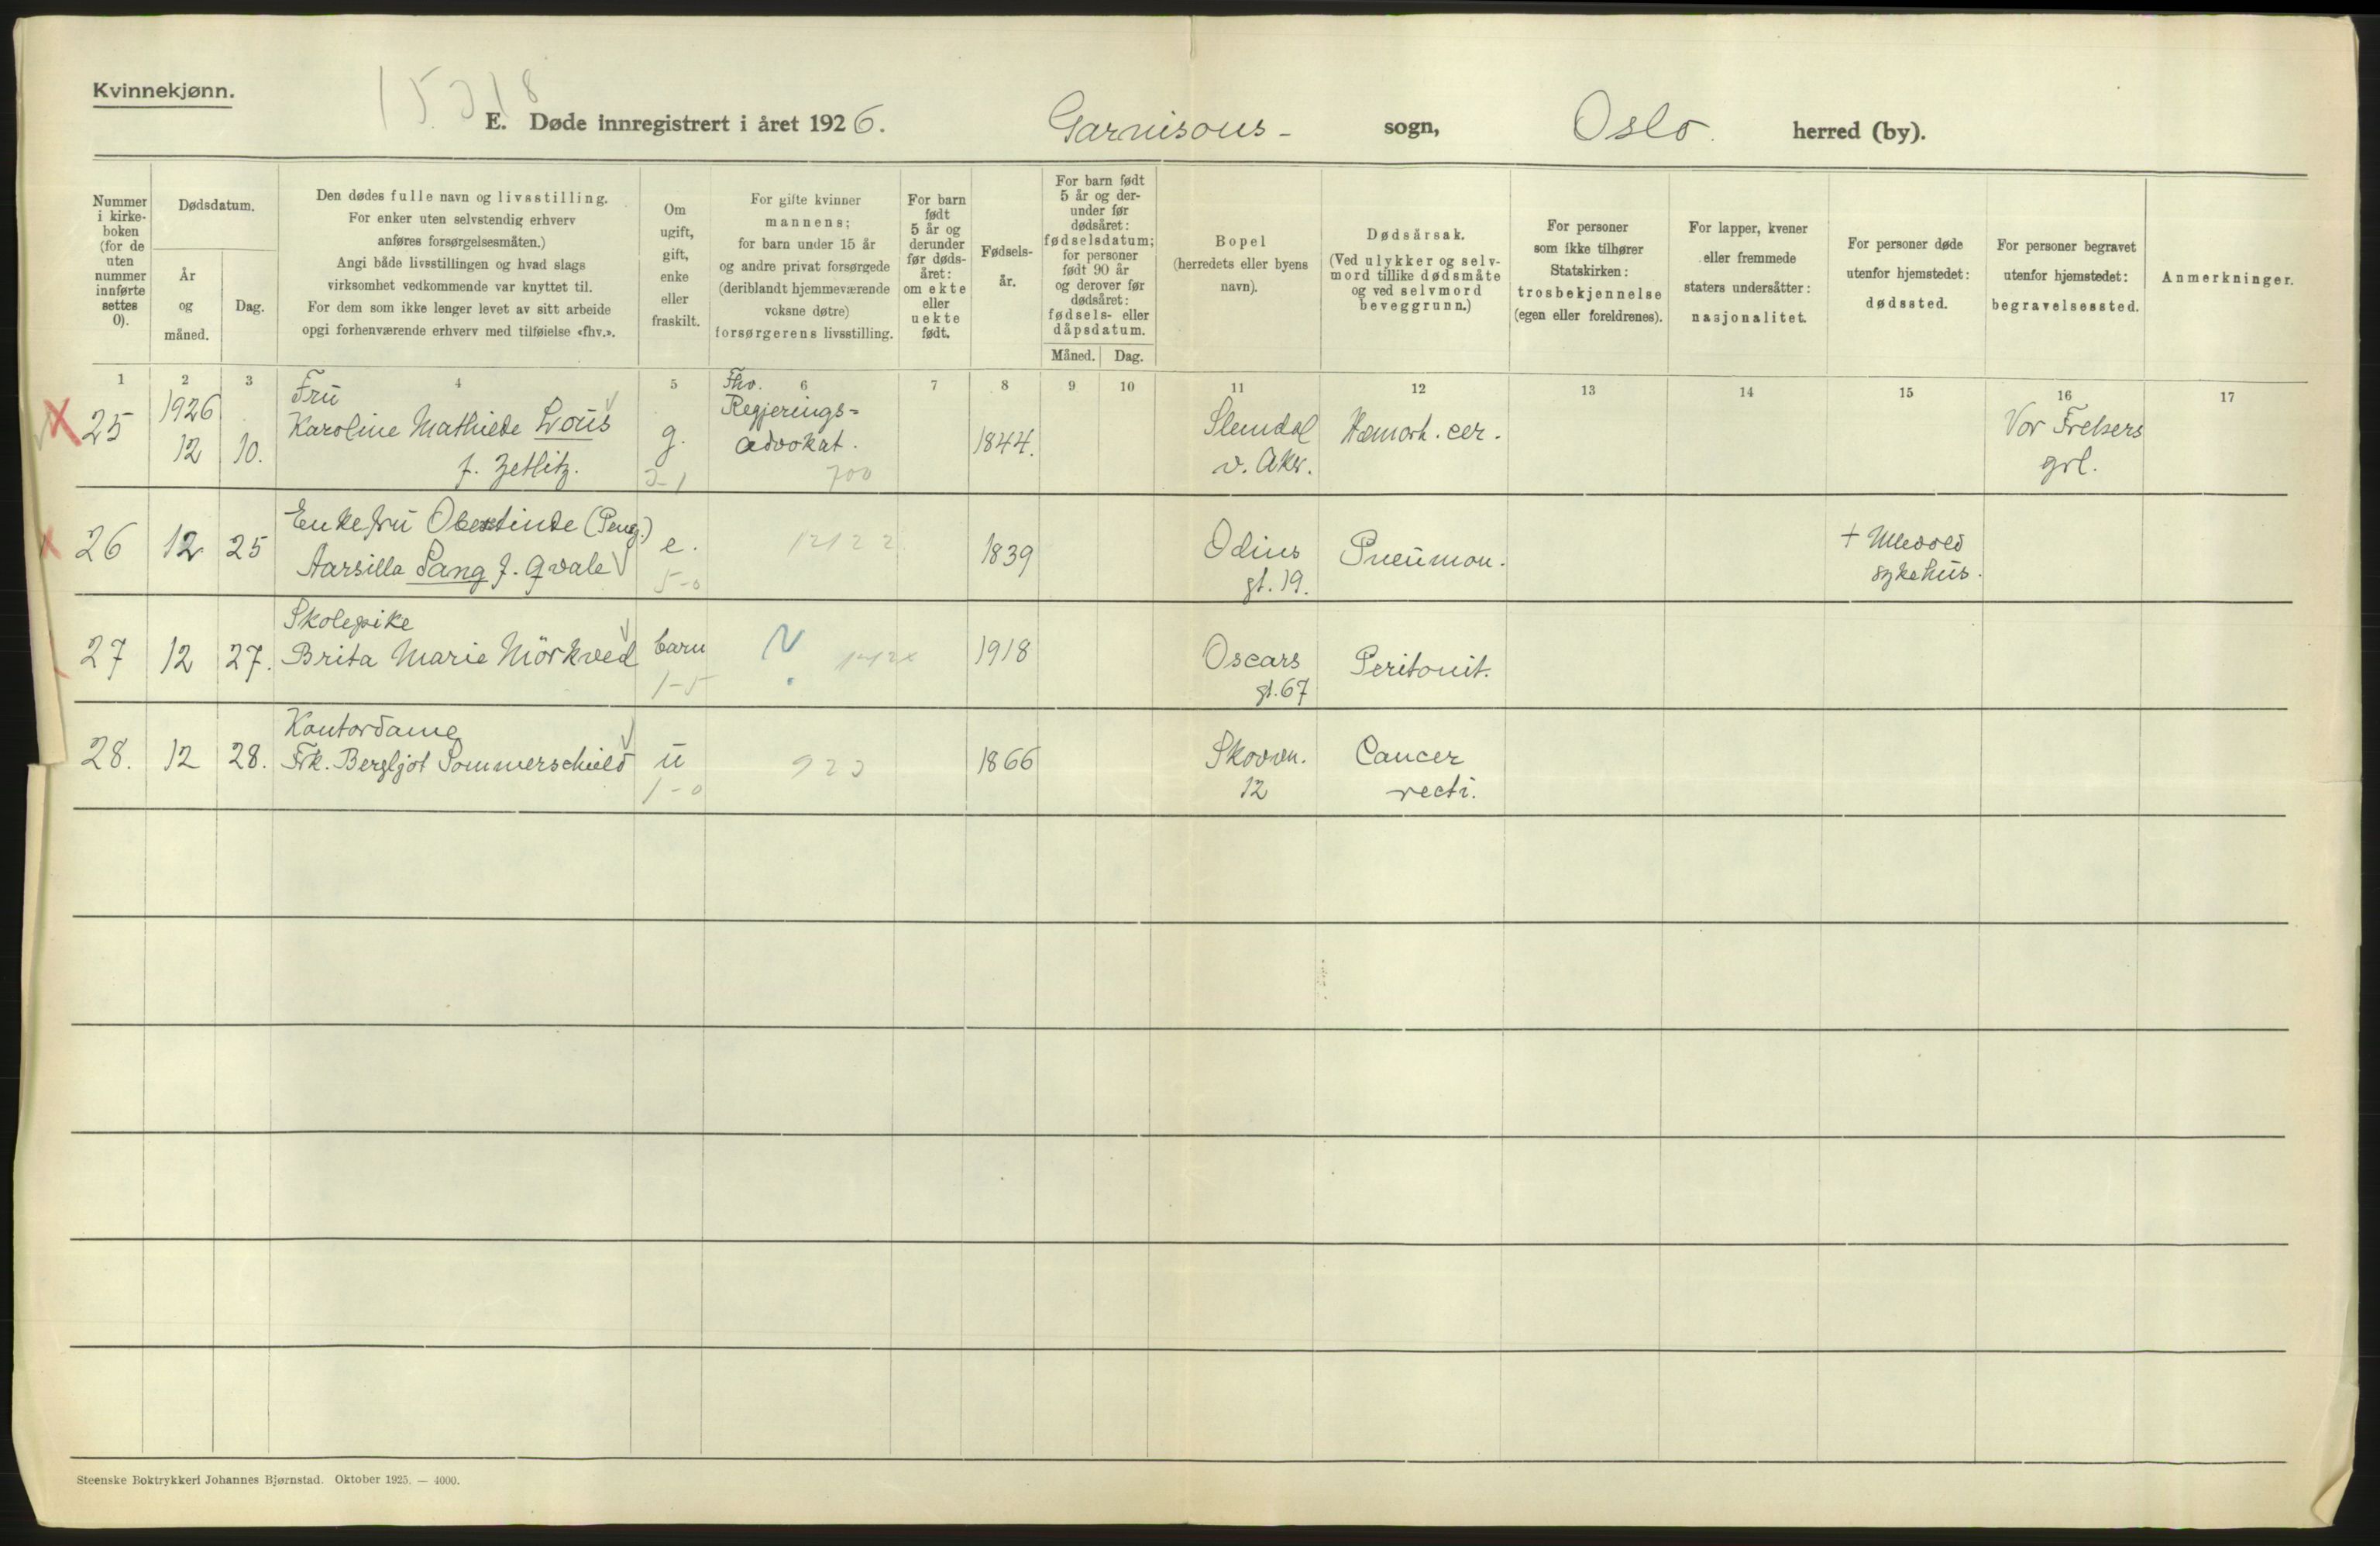 Kvinnekjønn.
E. Døde innregistrert i året 1926. Garnisons- sogn, Oslo. herred (by).
Nummer i kirke- boken (for de uten nummer innførte settes 0).
Dødsdatum.
År og måned.
Dag.
Den dødes fulle navn og livsstilling.
For enker uten selvstendig erhverv
anføres forsørgelsesmåten.)
Angi både livsstillingen og hvad slags
virksomhet vedkommende var knyttet til.
For dem som ikke lenger levet av sitt arbeide
opgi forhenværende erhverv med tilføielse «fhv.».
Om ugift, gift, enke eller fraskilt.
For gifte kvinner
mannens;
for barn under 15 år
og andre privat forsørgede
(deriblandt hjemmeværende
voksne døtre)
forsørgerens livsstilling.
For barn født 5 år og derunder før døds- året: om ekte eller uekte født.
Fødsels- år.
For barn født 5 år og der- under før dødsåret: fødselsdatum; for personer født 90 år og derover før dødsåret: fødsels- eller dåpsdatum.
Måned. Dag.
Bopel
(herredets eller byens
navn).
Dødsårsak.
(Ved ulykker og selv-
mord tillike dødsmåte
og ved selvmord
beveggrunn.)
For personer
som ikke tilhører
Statskirken:
trosbekjennelse
(egen eller foreldrenes).
For lapper, kvener
eller fremmede
staters undersåtter:
nasjonalitet.
For personer døde
utenfor hjemstedet:
dødssted.
For personer begravet
utenfor hjemstedet:
begravelsessted.
Anmerkninger.
1 2 3 4 5 6 7 8 9 10 11 12 13 14 15 16 17
25 1926 12 10. Fru Karoline Mathilde Lous f. Zetlitz. g. Fhv. Regjerings= advokat. 1844. Slemdal v. Aker. Hæmorh. cer. Vor Frelsers grl.
2-1 700
26 12 25 Enkefru (Peng.) Aarsilla Lang f. Qvale e. 1839 Odins gt. 19. Pneumon. + Ullevold sykehus.
5-0 12122
27 12 27. Skolepike Brita Marie Mörkved barn 1918 Oscars gt. 67 Peritonit.
1-5
28. 12 28. Kontordame Frk. Bergljot Sommerschield u 1866 Skovvn. 12 Cancer recti.
1-0
Steenske Boktrykkeri Johannes Bjørnstad. Oktober 1925. — 4000.